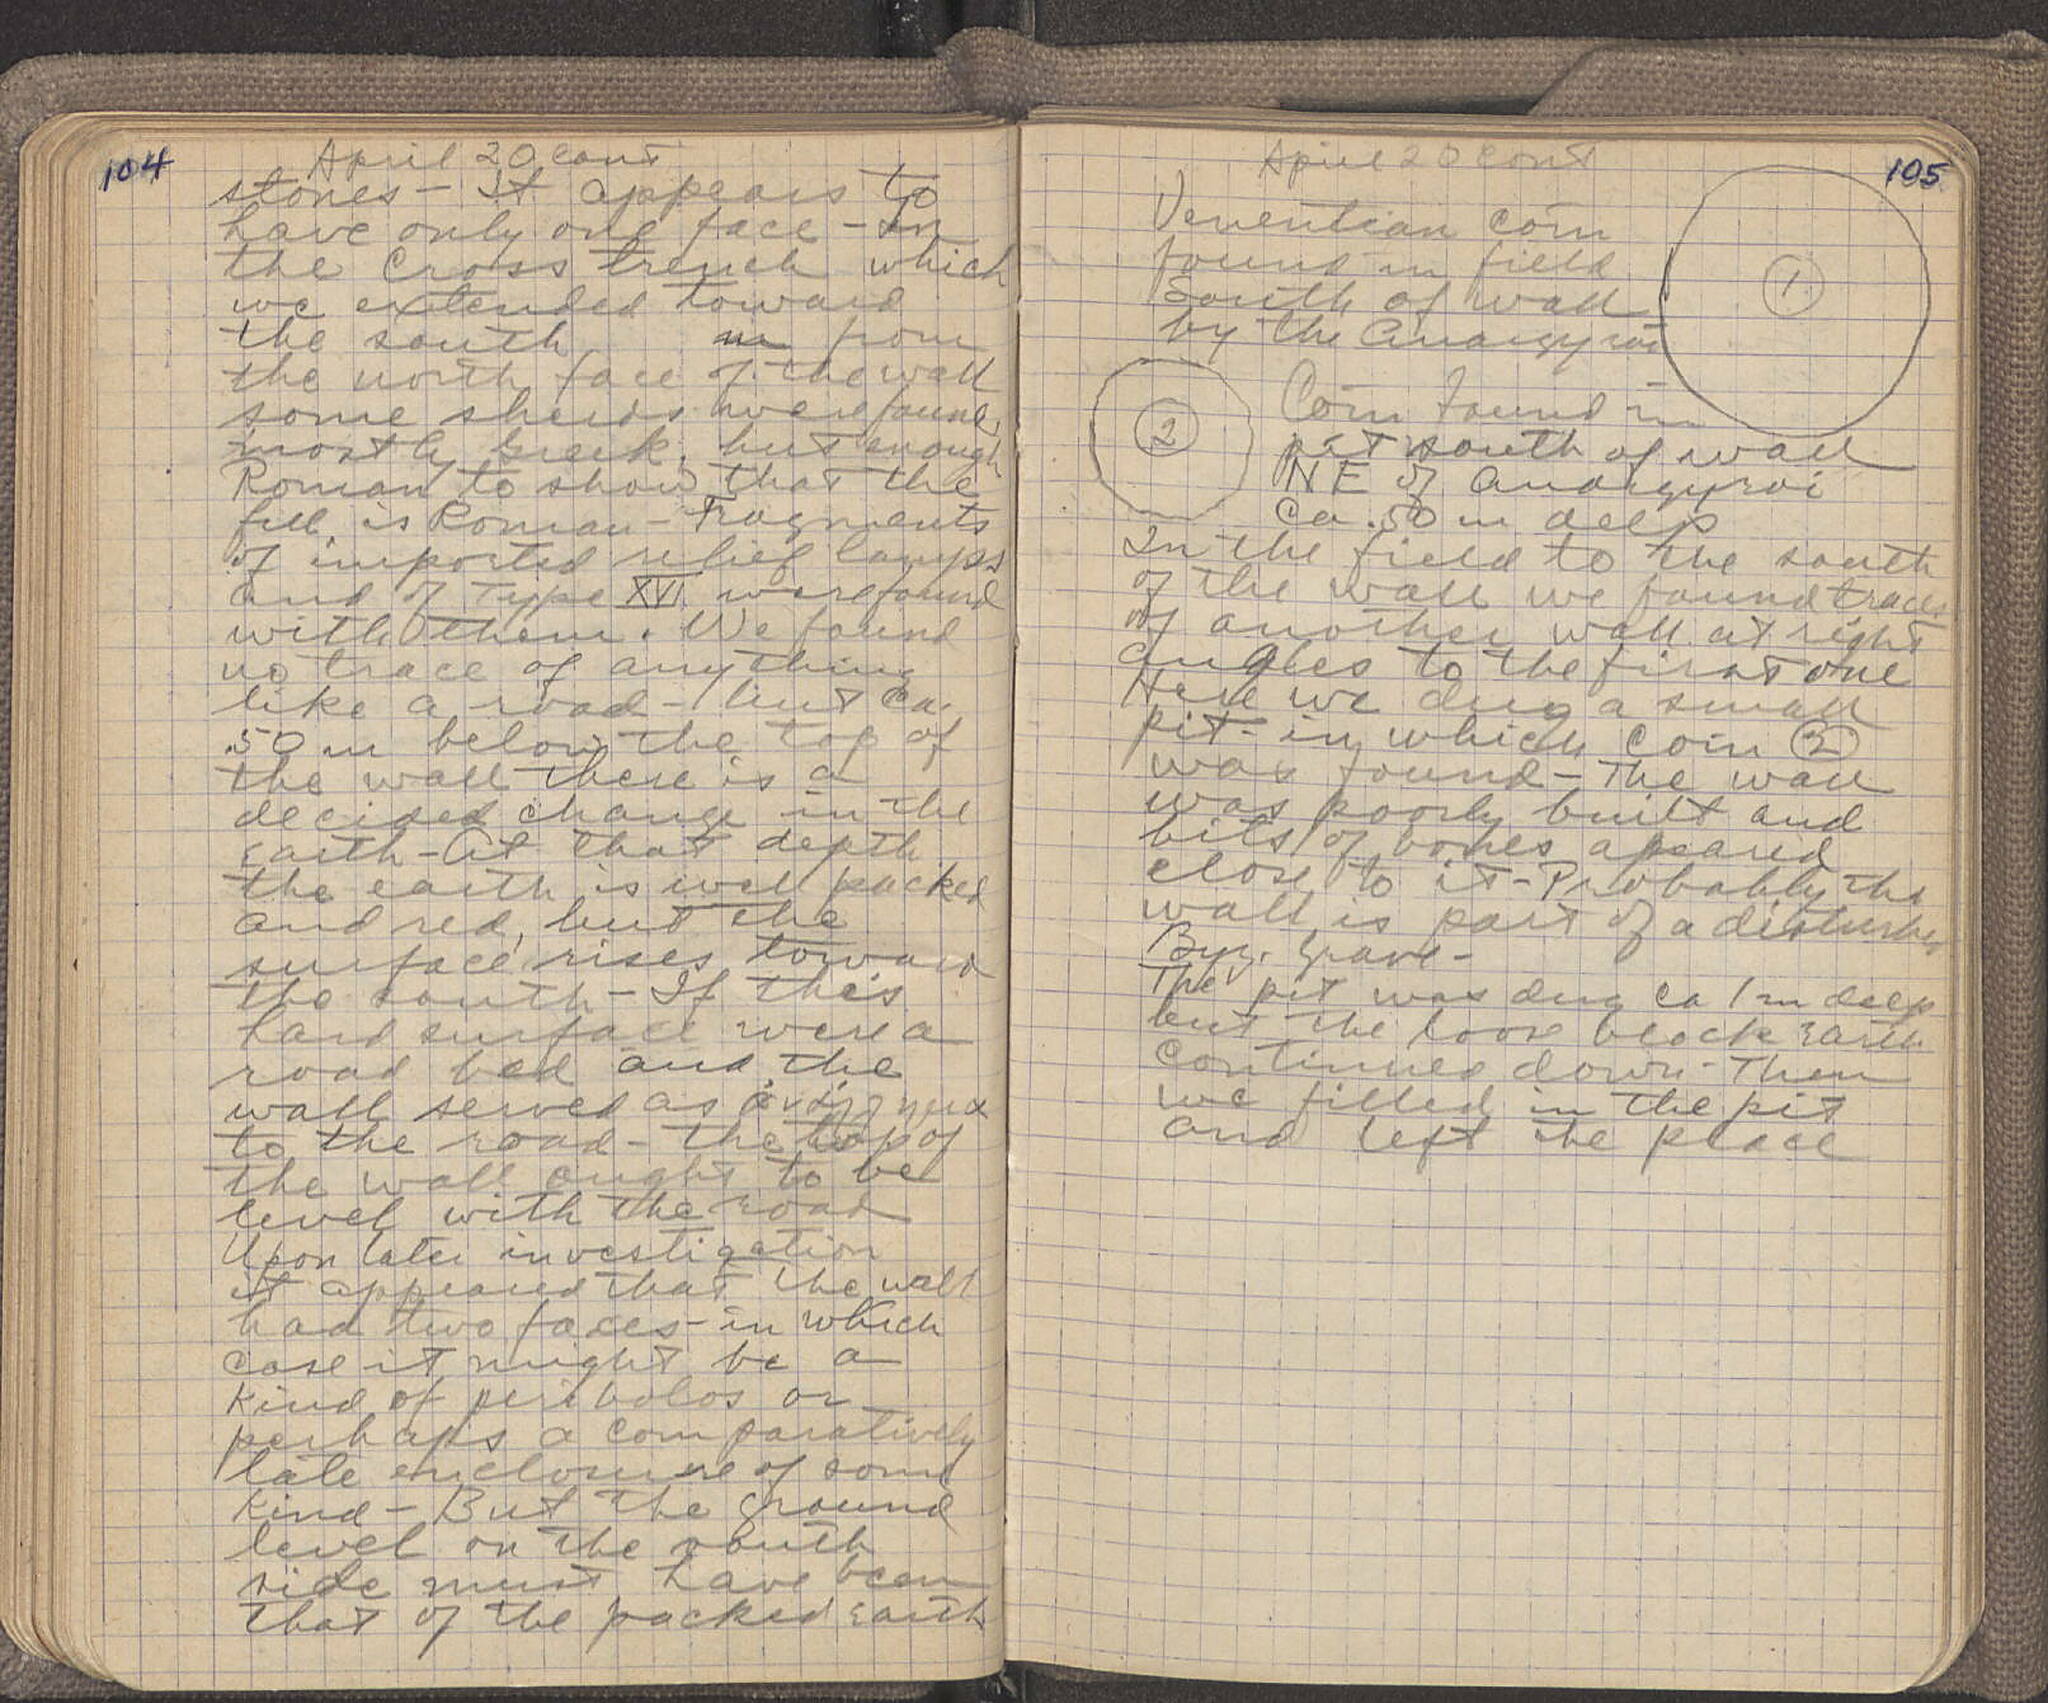 104
April 20 cont
stones - It appears to
have only one face - In
the cross trench which
we extended toward
the south m from
the north face of the wall
some sherds were found,
mostly Greek, but enough
Roman to show that the
fill is Roman - Fragments
of imported relief lamps
and of Type XVI were found
with them. We found
no trace of anything
like a road - but ca.
.50 m below the top of
the wall there is a
decided change in the
earth - At that depth
the earth is well packed
and red, but the
surface rises toward
the south - If this
hard surface were a
road bed and the
wall served as
to the road - the top of
the wall ought to be
level with the road
Upon later investigation
it appeared that the wall
had two faces - in which
case it might be a
kind of peribolos or
perhaps a comparatively
late enclosure of some
kind - But the ground
level on the south
side must have been
that of the packed earth
April 20 cont
105
Venentian coin
found in field
South of wall
by the Anargyroi
1
2
Coin found in
pit south of wall
NE of Anargyroi
ca .50 m deep
In the field to the south
of the wall we found traces
of another wall at right
angles to the first one
Here we dug a small
pit - in which coin 2
was found - The wall
was poorly built and
bits of bones apeared
close to it - Probably the
wall is part of a disturbed
Byz. grave -
The pit was dug ca 1 m deep
but the loose black earth
continued down - Then
we filled in the pit
and left the place